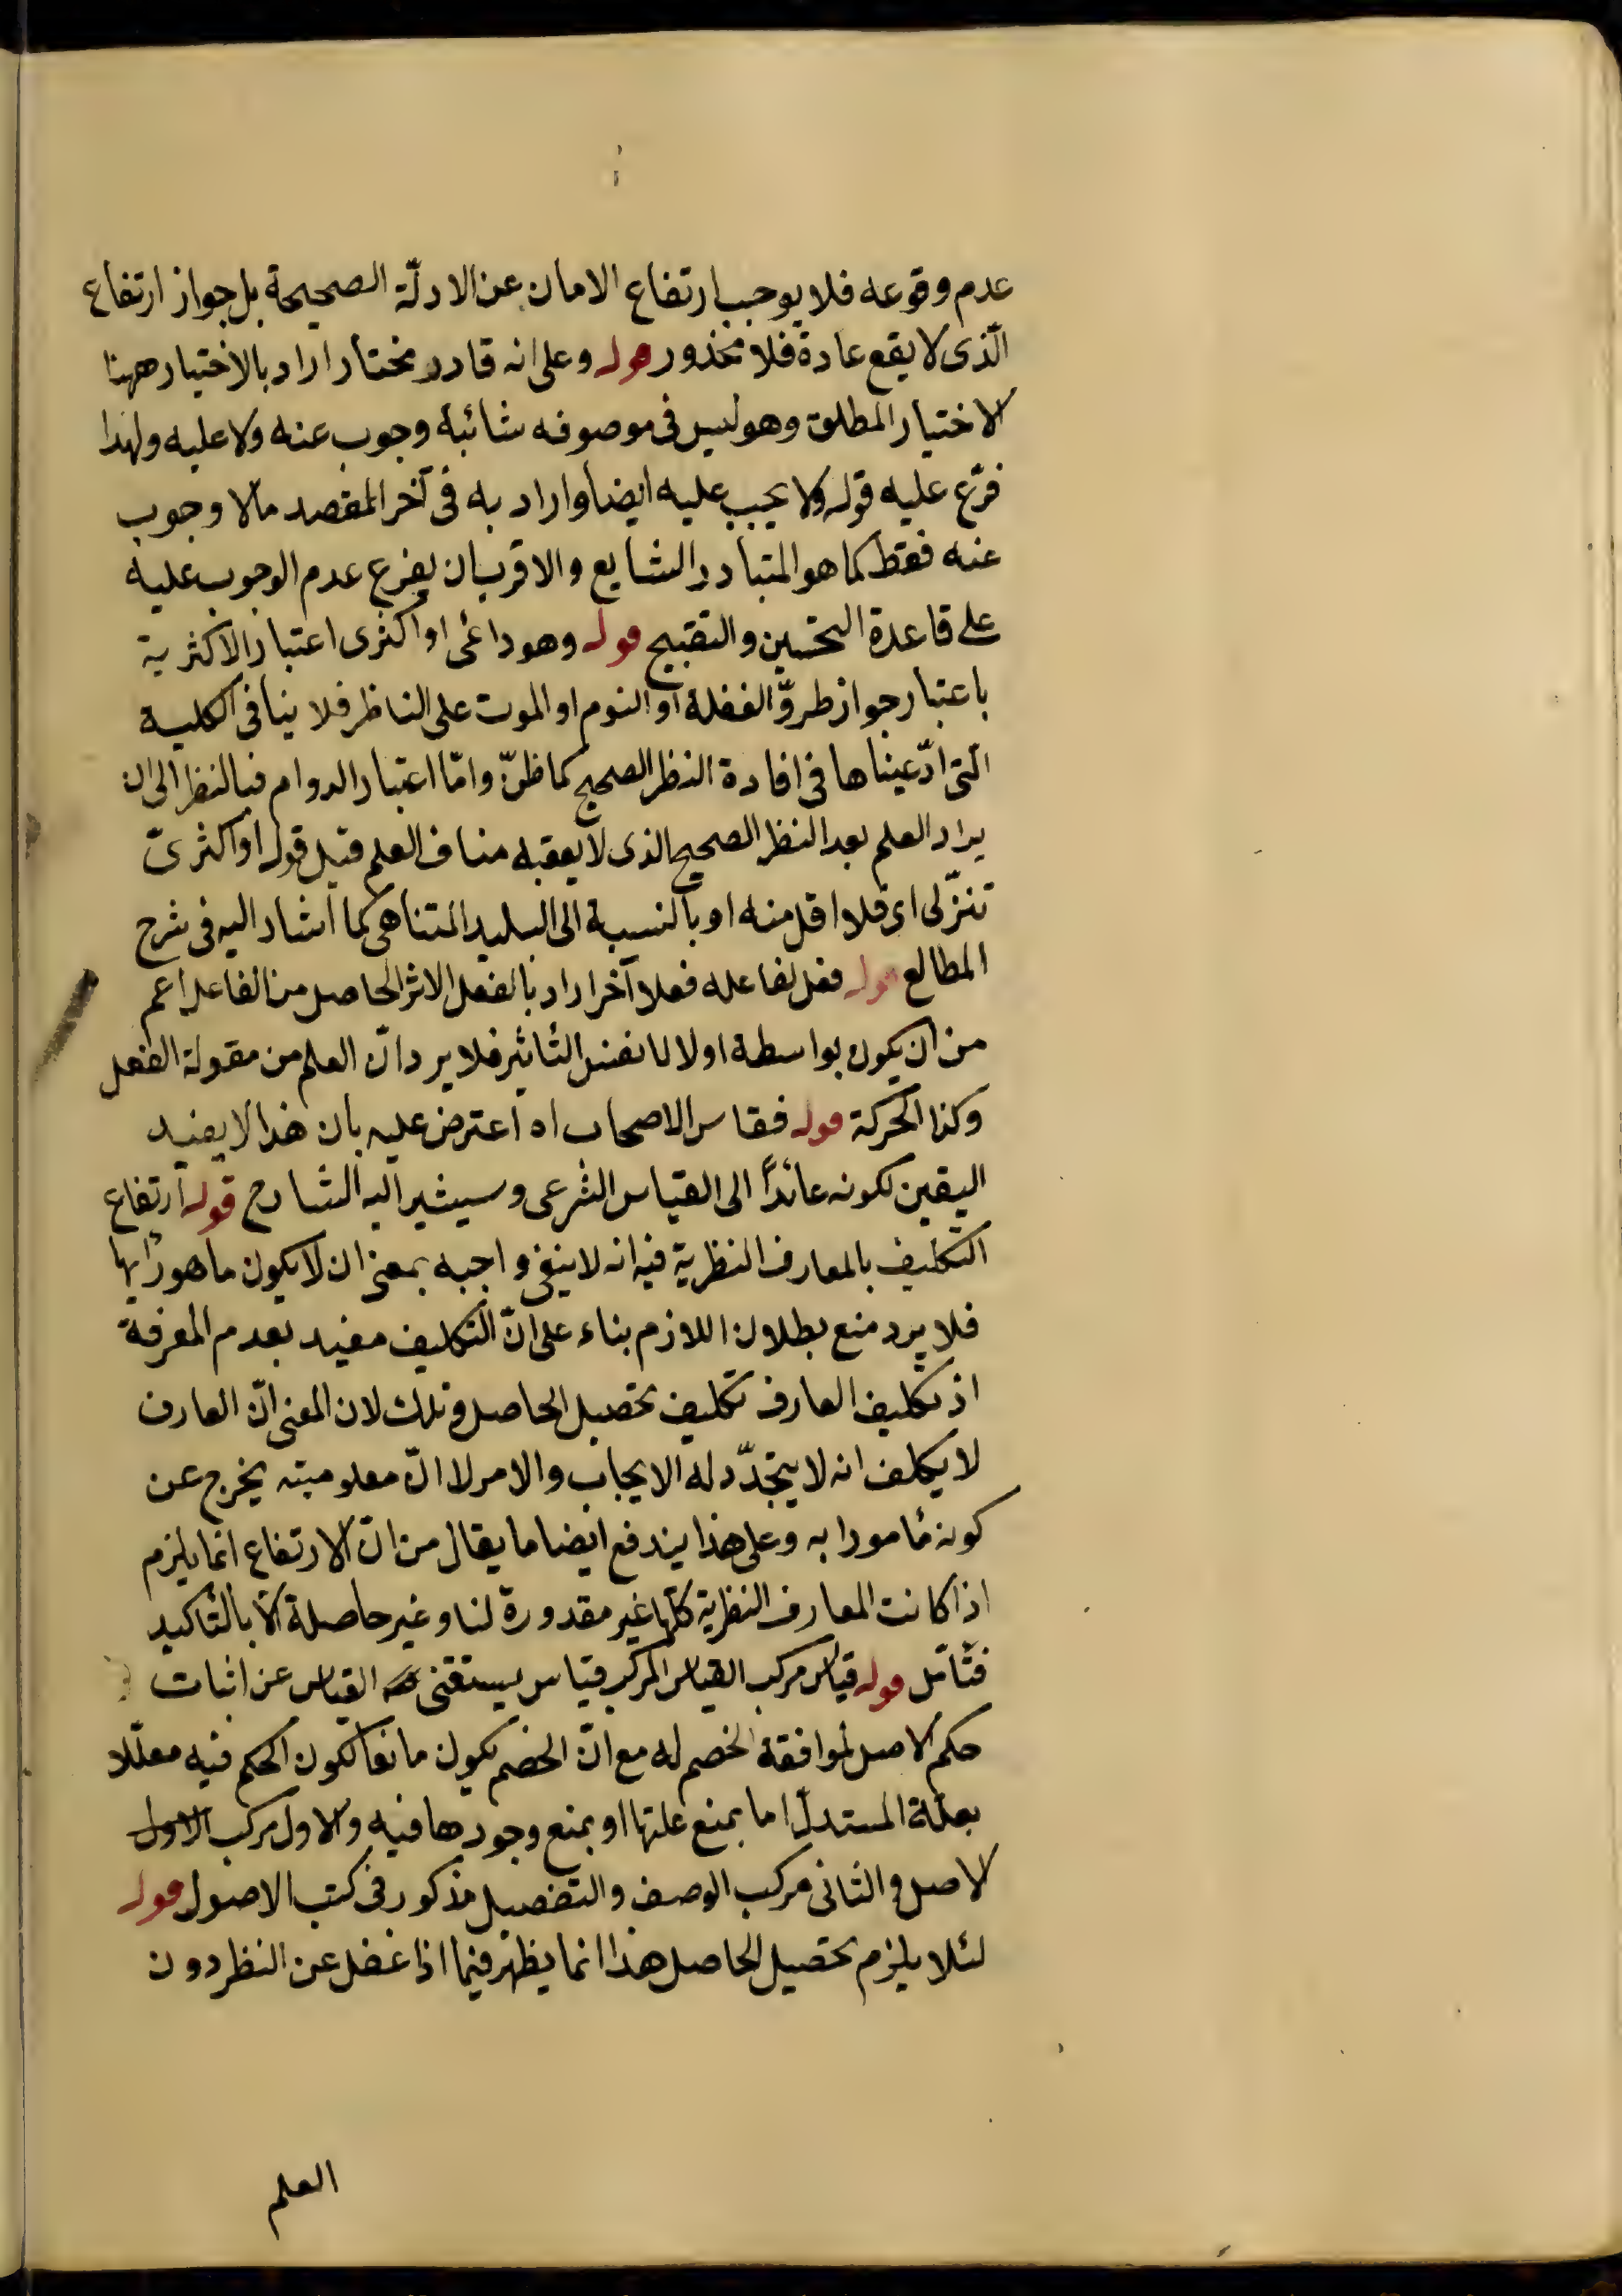 عدم وقوعه فلا يوجب ارتفاع الامان عن الادلّة الصحيحة بل جواز ارتفاع
الّذى لا يقع عادة فلا محذور قوله وعلى انه قادر مختار اراد بالاختيار ههنا
الاختيار المطلق وهو ليس فى موصوفه شائبة وجوب عنه ولا عليه ولهذا
فرّع عليه قوله ولا يجب عليه ايضا واراد به فى آخر المقصد مالا وجوب
عنه فقط كما هو المتبادر الشايع والاقرب ان يفرع عدم الوجوب عليه
على قاعدة التحسين والتقبيح قوله وهو دائمى او اكثرى اعتبار الاكثرية
باعتبار جواز طروّ الغفلة او النوم او الموت على الناظر فلا ينافى الكلية
الّتى ادّعيناها فى افادة النظر الصحيح كما ظنّ وامّا اعتبار الدوام فبالنظر الى ان
يراد العلم بعد النظر الصحيح الذى لا يعقبه مناف العلم قيل قوله او اكثرىّ
تنزّلى اى فلا اقل منه او بالنسبة الى البليد المتناهى كما اشار اليه فى شرح
المطالع قوله فعل لفاعله فعلا آخر اراد بالفعل الاثر الحاصل من الفاعل اعم
من ان يكون بواسطة اولا لا نفس التأثير فلا يرد انّ العلم من مقولة الفعل
وكذا الحركة قوله فقاس الاصحاب اه اعترض عليه بان هذا لا يفيد
اليقين لكونه عائدًا الى القياس الشرعى وسيشير اليه الشارح قوله ارتفاع
التكليف بالمعارف النظرية فيه انه لا ينبغى واجبه بمعنى ان لا يكون ما هو رأيها
فلا يرد منع بطلان اللازم بناء على انّ التكليف مفيد بعدم المعرفة
اذ تكليف العارف تكليف تحصيل الحاصل وذلك لان المعنى انّ العارف
لا يكلف انه لا يتجدّد له الايجاب والامر لا انّ معلوميته يخرج عن
كونه مأمورا به وعلى هذا يندفع ايضا ما يقال من انّ الارتفاع انما يلزم
اذا كانت المعارف النظرية كلّها غير مقدورة لنا وغير حاصلة الّا بالتأكيد
فتأمّل قوله قياس مركب القياس المركب قياس يستغنى القياس عن اثبات
حكم الاصل لموافقة الخصم له مع انّ الخصم يكون مانعا لكون الحكم فيه معلّلا
بعلّة المستدلّ اما بمنع علتها او بمنع وجودها فيه والاول مركب الاول
الاصل والثانى مركب الوصف والتفصيل مذكور فى كتب الاصول قوله
لئلا يلزم تحصيل الحاصل هذا انما يظهر فيما اذا غفل عن النظر دون
العلم